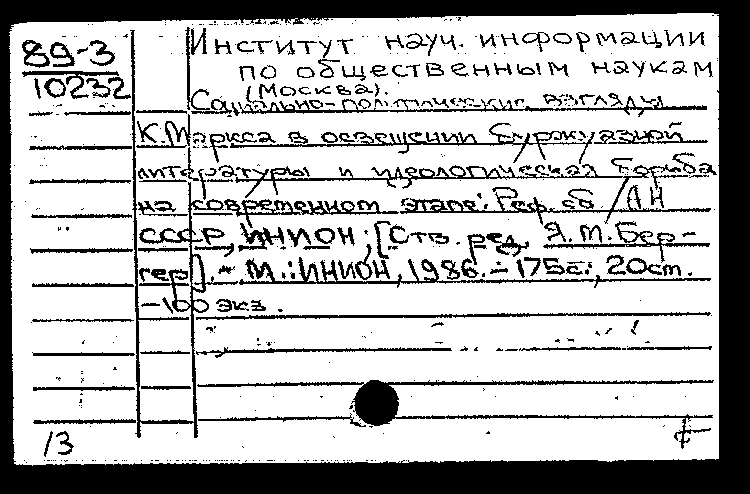 89-3
10232
Институт науч. информации
по общественным наукам
(Москва).
Социально-политические взгляды
К.Маркса в освещении буржуазной
литературы и идеологическая борьба
на современном этапе: Реф. сб / АН
СССР, ИНИОН; [Отв. ред. Я.М.Бер-
гер]. - М.: ИНИОН, 1986. - 175с.; 20см.
-100 экз.
13